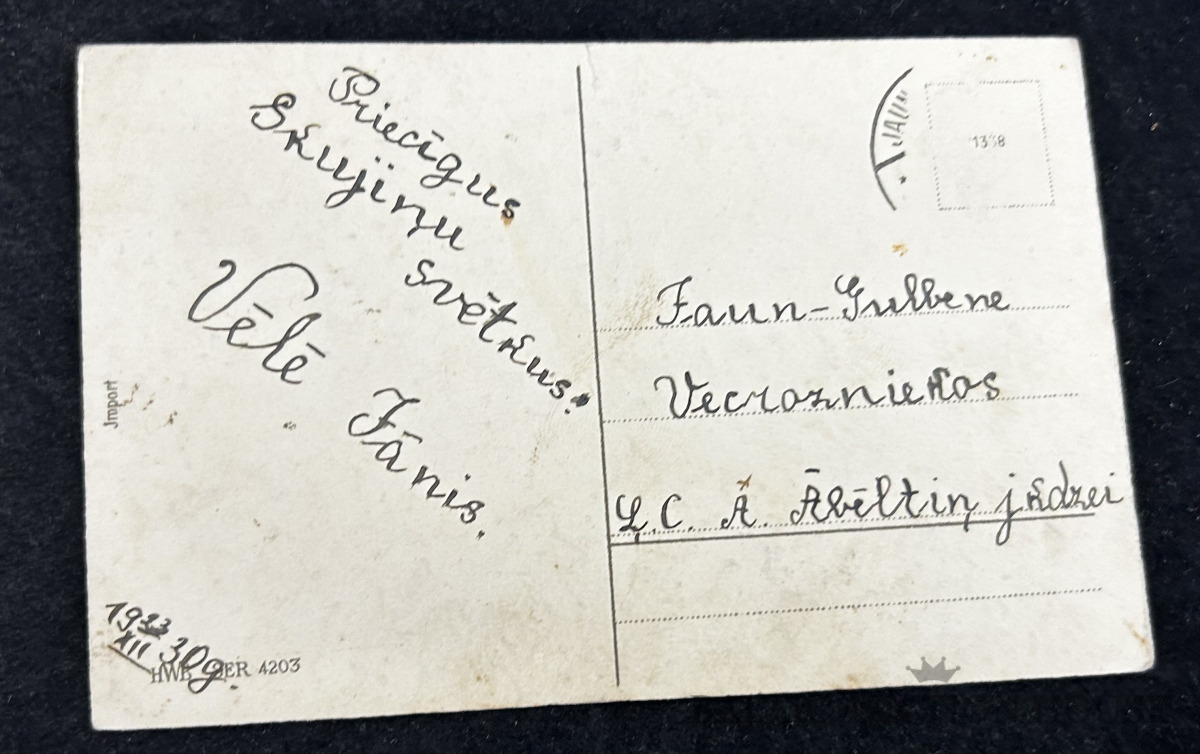 Priecīgus
Skujiņu
svētkus!
Vēlē
Jānis.
19 23/XII 30g.
Import
HWB SER 4203
1338
Jaun-Gulbene
Vecrozniekos
Ļ.C. A. Ābēltiņ jkdzei